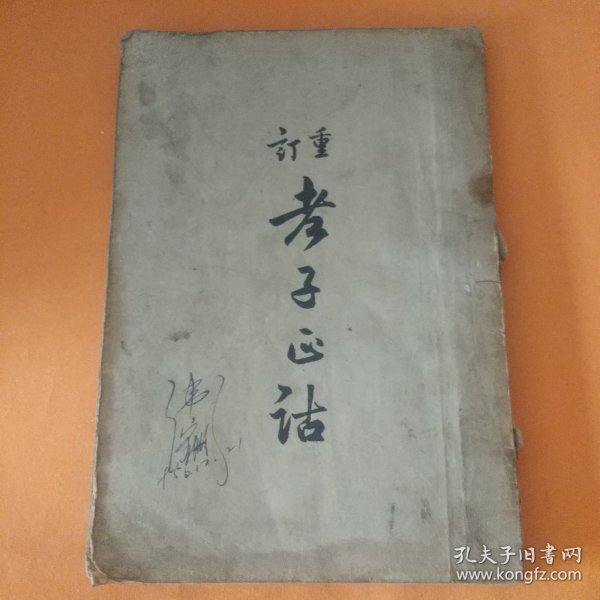 重訂
老子正詁
孔夫子旧書网
www.kongfz.com